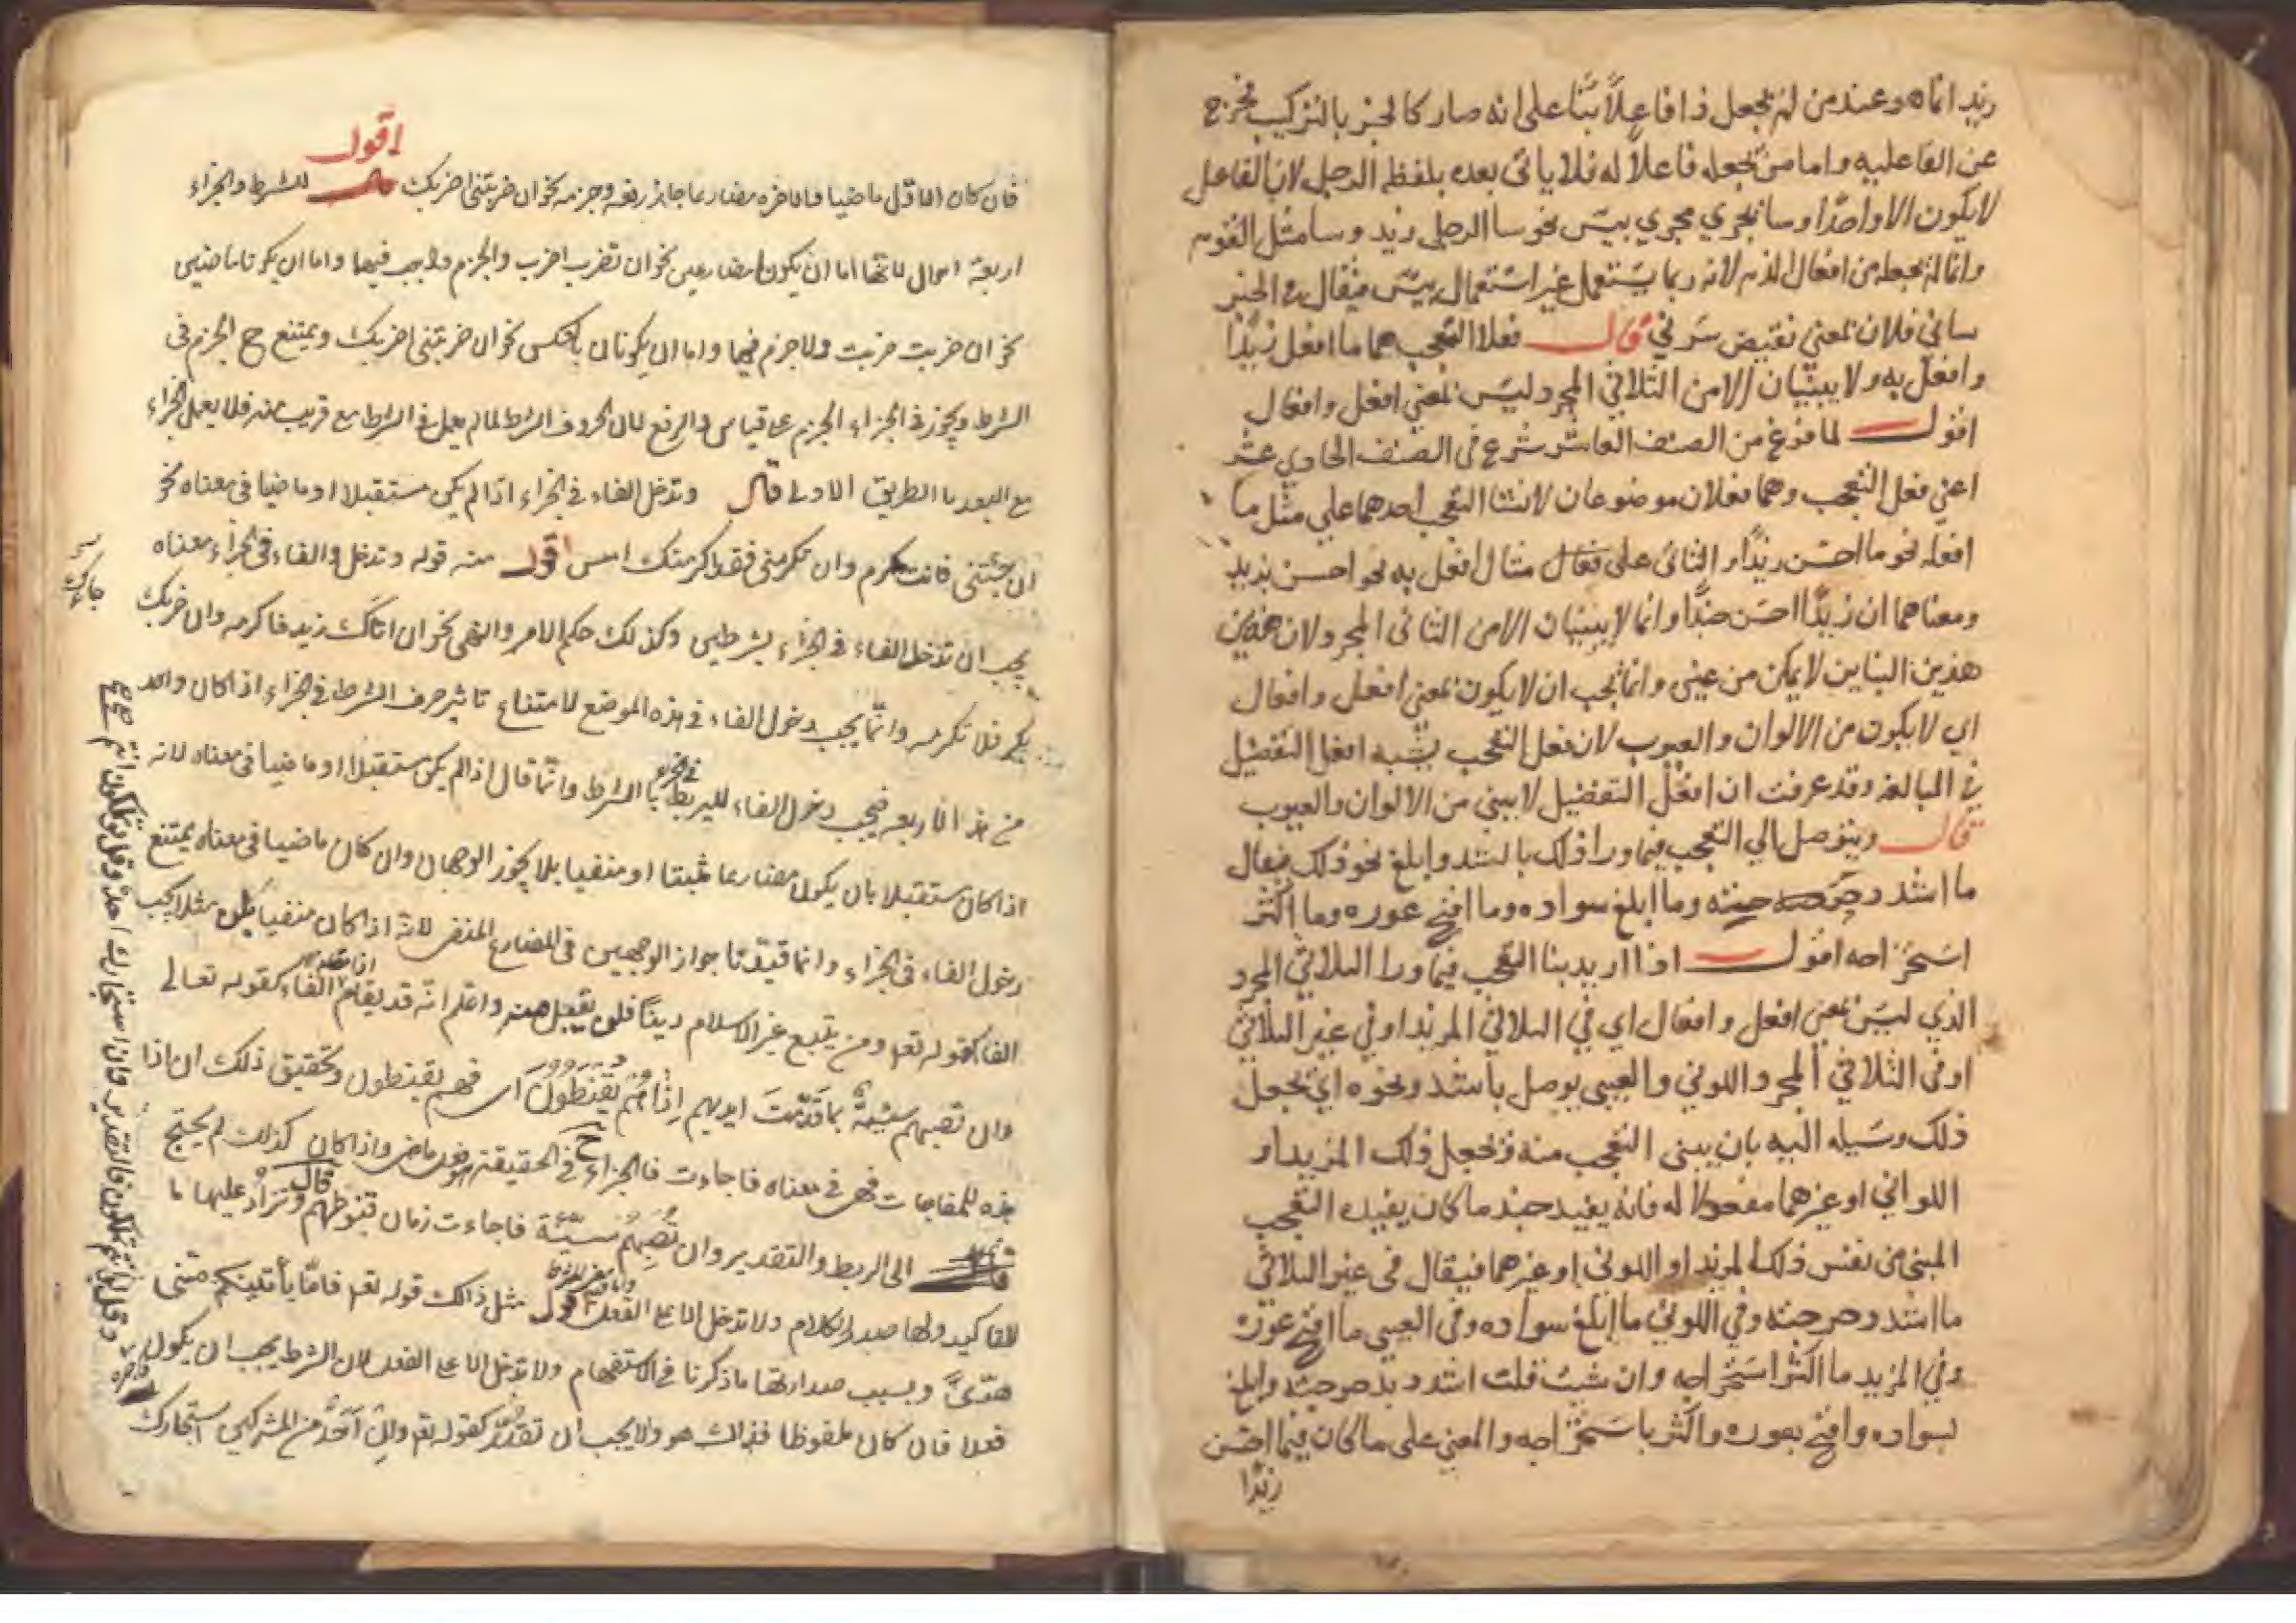 زيد اتاه وعند من لم يجعل ذا فاعلاً بنا على انه صار كالجنر بالتركيب مخرج
عن الفاعليه واما من يجعله فاعلاً له فلا ياتى بعده بلفظ الرجل لان الفاعل
لا يكون الا واحدًا وسا يجري مجري بيس نحو سا الرجل زيد وسا مثل القوم
وانما لم يجعله من افعال الذم لانه ربما يستعمل غير استعمال بيس فيقال في الخبر
سانى فلان بمعنى نقيض سرني قال فعلا التعجب هما ما افعل زيدًا
وافعل به ولا يبنيان الا من الثلاثي المجرد ليس بمعنى افعل وافعال
اقول لما فرغ من الصنف العاشر شرع في الصنف الحادي عشر
اعني فعل التعجب وهما فعلان موضوعان لانشا التعجب احدهما على مثل ما
افعله نحو ما احسن زيدًا والثانى على فعال مثال افعل به نحو احسن بزيد
ومعناهما ان زيدًا احسن جدًا وانما لا يبنيان الا من الثانى المجرد لان هذين
هذين البناين لا يمكن من غيره وانما يجب ان لا يكون بمعنى افعل وافعال
اي لا يكون من الالوان والعيوب لان فعل التعجب يشبه افعل التفضيل
في المبالغه وقد عرفت ان افعل التفضيل لا يبنى من الالوان والعيوب
قال ويتوصل الي التعجب فيما ورا ذلك باشد وابلغ نحو ذلك فيقال
ما اشد دحرجته وما ابلغ سواده وما اقبح عوره وما اكثر
استخراجه اقول اذا اريد بنا التعجب فيما ورا الثلاثي المجرد
الذي ليس بمعنى افعل وافعال اي في الثلاثي المزيد او في غير الثلاثي
او في الثلاثي المجرد اللوني والعيبي يوصل باشد ونحوه اي يجعل
ذلك وسيله اليه بان يبنى التعجب منه ويجعل ذلك المزيد او
اللوانى او غيرهما مفعولا له فانه يفيد حينئذ ما كان يفيده التعجب
المبنى من نفس ذلك المزيد او اللونى او غيرهما فيقال في غير الثلاثي
ما اشد دحرجته وفي اللوني ما ابلغ سواده وفى العيبى ما اقبح عوره
وفي المزيد ما اكثر استخراجه وان شيت قلت اشدد بدحرجته وابلغ
بسواده واقبح بعوره واكثر باستخراجه والمعنى على ما كان فيما احسن
زيدًا
اقول
فان كان الاول ماضيا والاخره مضارعا جاز رفعه وجزمه نحو ان ضربتنى اضربك للشرط والجزاء
اربعة احوال لانهما اما ان يكونا مضارعين نحو ان تضرب اضرب والجزم واجب فيهما واما ان يكونا ماضيين
نحو ان ضربت ضربت ولا جزم فيهما واما ان يكونان بالعكس نحو ان ضربتنى اضربك ويمتنع ح الجزم فى
الشرط ويجوز فى الجزاء الجزم على قياس والرفع لان الحروف الشرط لما لم يعمل فى الشرط مع قربه منه فلا يعمل الجزاء
مع البعد بالطريق الاولى قال وتدخل الفاء فى الجزاء اذا لم يكن مستقبلا او ماضيا فى معناه نحو
ان جئتنى فانت مكرم وان تكرمنى فقد اكرمتك امس اقول منه قوله وتدخل والفاء فى الجزاء معناه
يجب ان تدخل الفاء فى الجزاء بشرطين وكذلك حكم الامر والنهى نحو ان اتاك زيد فاكرمه وان ضربك
بكر فلا تكرمه وانّما يجب دخول الفاء فى هذه الموضع لامتناع تاثير حرف الشرط فى الجزاء اذا كان واحد
من هذا الاربعه فيجب دخول الفاء لليربط با الشرط وانّما قال اذا لم يكن مستقبلا او ماضيا فى معناه لانه
اذا كان مستقبلا بان يكون مضارعا مثبتا او منفيا بلا يجوز الوجهان وان كان ماضيا فى معناه يمتنع
دخول الفاء فى الجزاء وانما قيدنا جواز الوجهين فى المضارع المنفى لانه اذا كان منفيا بلن مثلا يجب
الفا كقوله تعا ومن يتبع غير الاسلام دينًا فلن يقبل منه واعلم انّه قد يقام الفاء كقوله تعالى
وان تصبهم سيئةٌ بما قدّمت ايديهم اِذا هُم يَقنَطُونَ اى فهم يقنطون وتحقيق ذلك ان اذا
هذه للمفاجات فهى فى معناه فاجاءت فالجزاء فى الحقيقة ماض واذا كان كذلك لم يحتج
الى الربط والتقدير وان تُصِبهُم سيّئة فاجاءت زمان قنوطهم قال وتزاد عليها ما
للتاكيد ولها صدر الكلام ولا تدخل الا على الفعل اقول مثل ذالك قوله تعا فامّا يأتينكم منى
هدًى وبسبب صدارتها ما ذكرنا فى الاستفهام ولا تدخل الا على الفعل لان الشرط يجب ان يكون
فعلا فان كان ملفوظا فذاك هو والا يجب ان تقدر كقوله تعا وان اَحَدٌ من المشركين استجارك